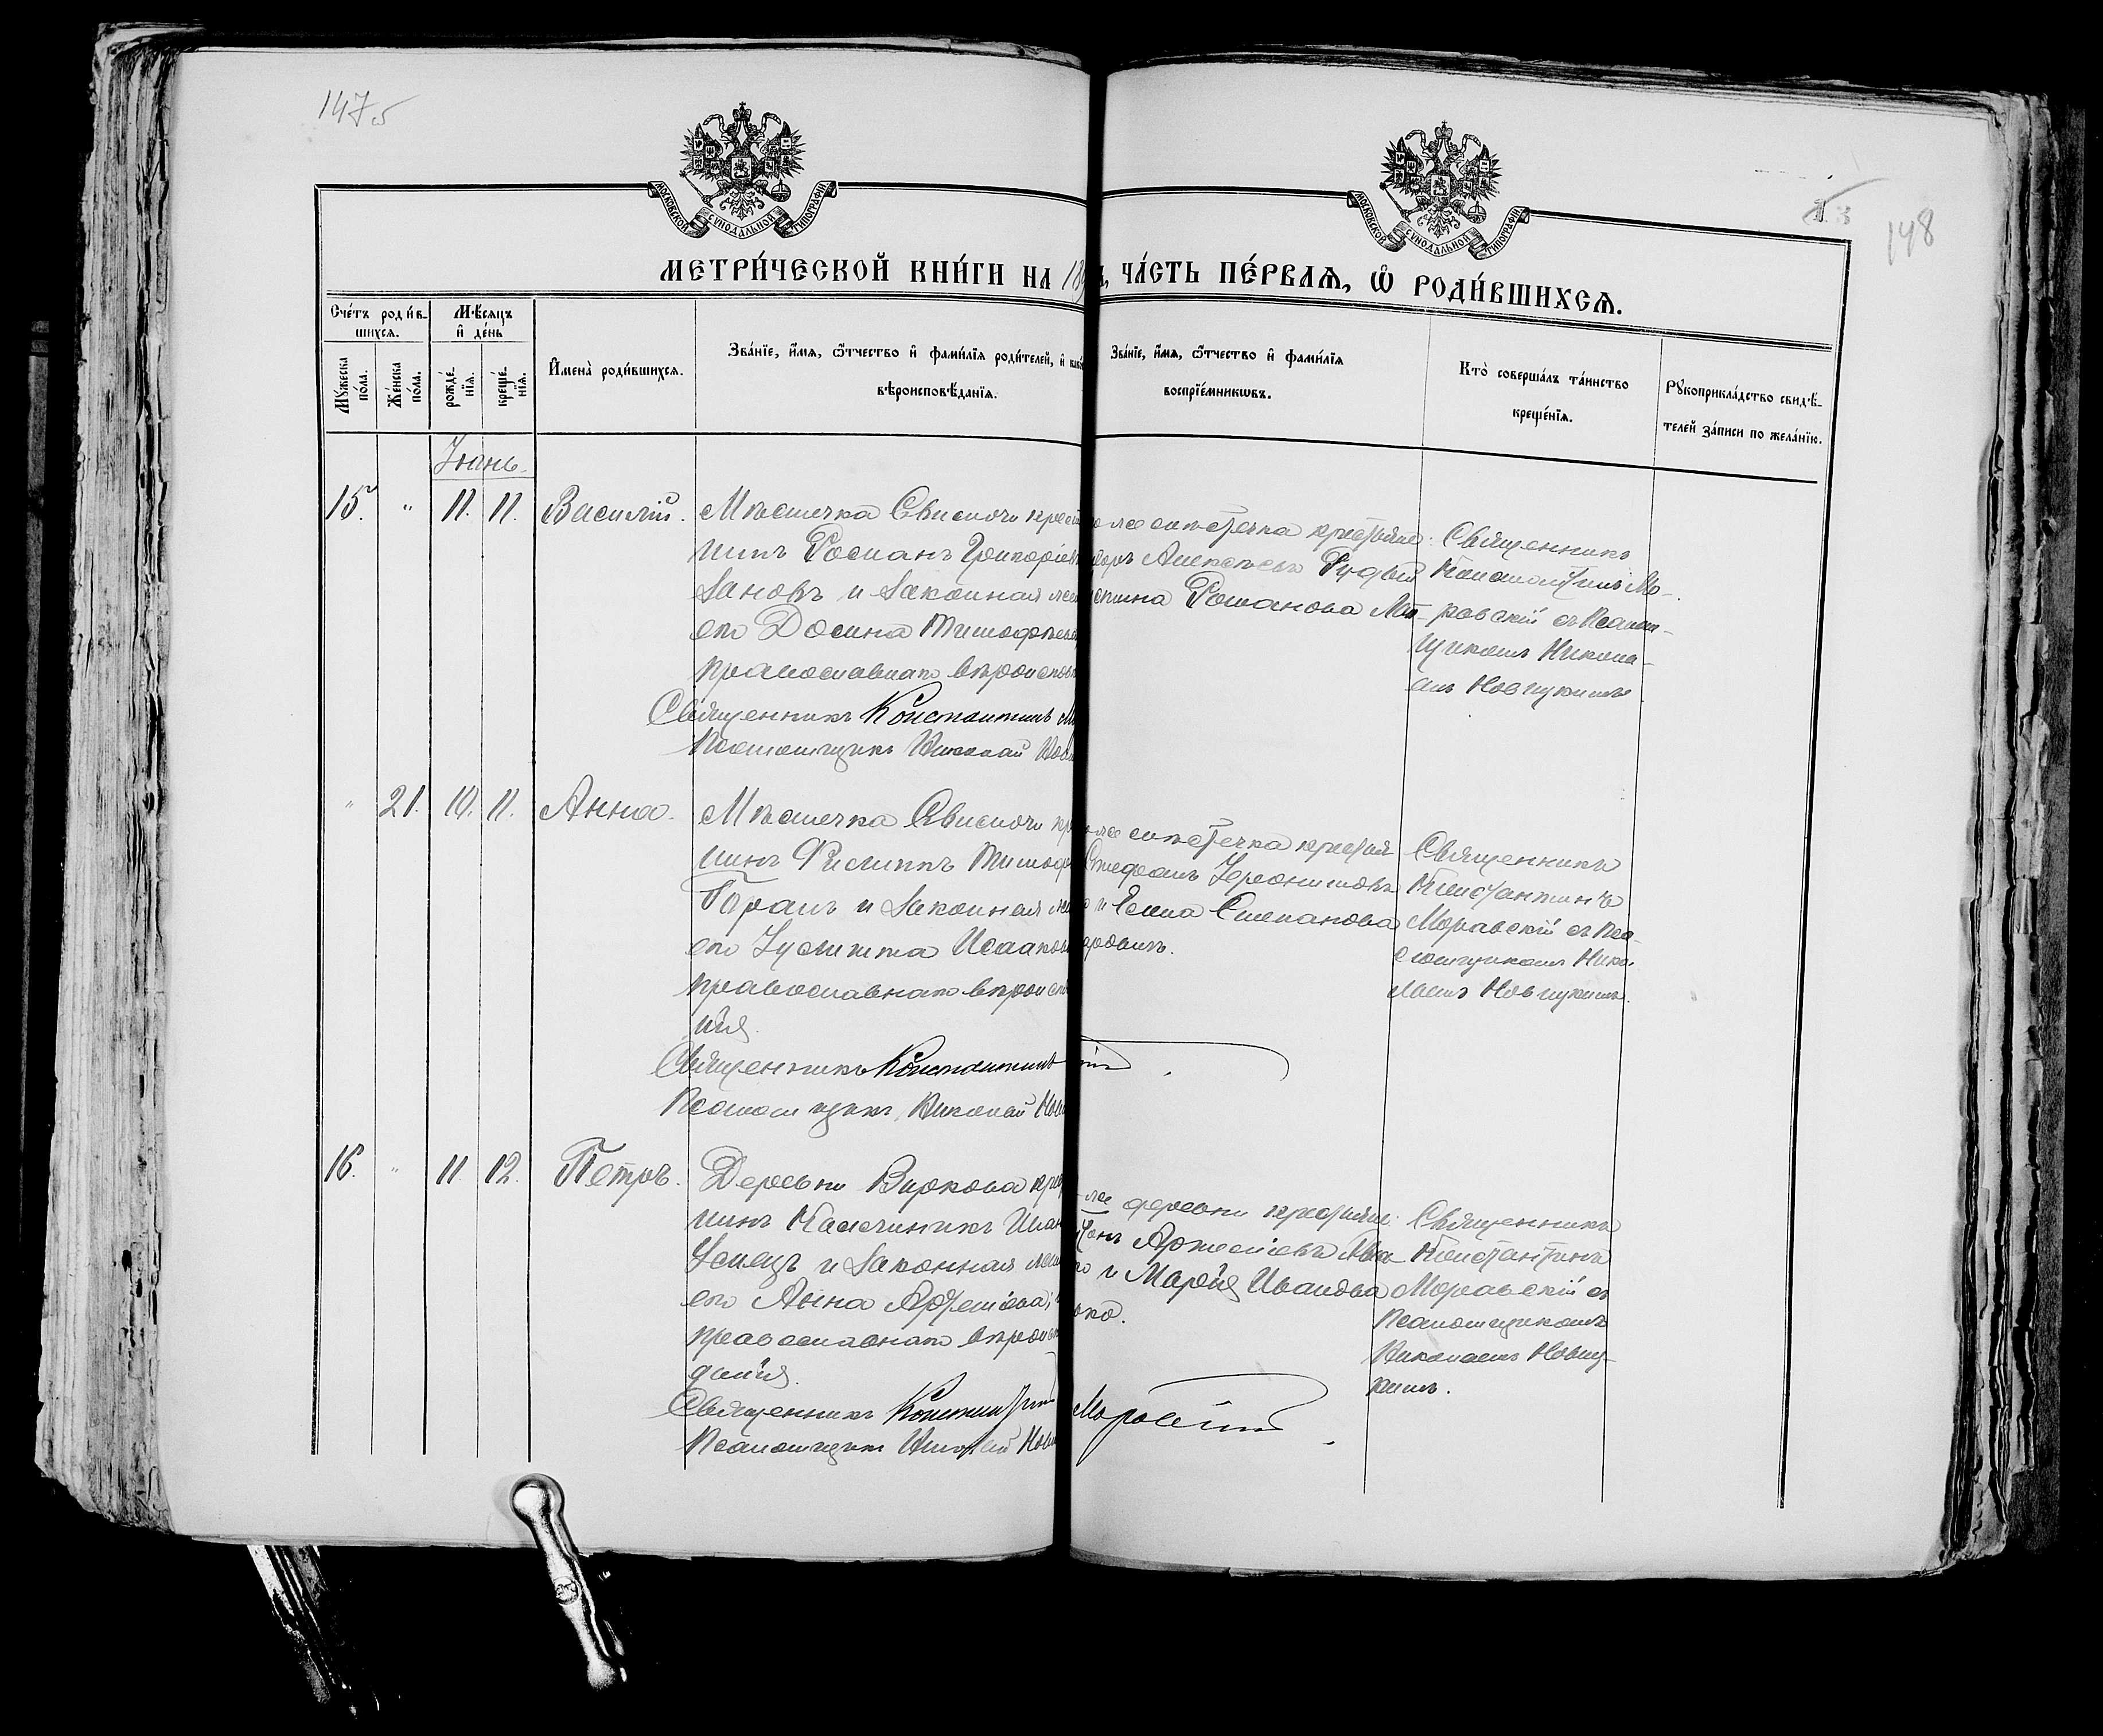 147б
МОСКОВСКОЙ СѴНОДАЛЬНОЙ ТИПОГРАФІИ
МОСКОВСКОЙ СѴНОДАЛЬНОЙ ТИПОГРАФІИ
148
МЕТРИ́ЧЕСКОЙ КНИ́ГИ НА 189
ЧА́СТЬ ПЕ́РВАЯ, Ѿ РОДИ́ВШИХСЯ.
Сче́тъ роди́в-
шихся.
Мѣсяцъ
и҆ де́нь
Мꙋжеска
по́ла.
Же́нска
по́ла.
рожде́-
нїя.
креще́-
нїя.
И҆мена̀ роди́вшихся.
Зва́нїе, и҆́мя, ѻ҆́тчество и҆ фами́лїя роди́телей, и҆
вѣроисповѣ́данїя.
Зва́нїе, и҆́мя, ѻ҆́тчество и҆ фами́лїя
воспрїе́мниковъ.
Кто̀ соверша́лъ та́инство
креще́нїя.
Рꙋкоприкла́дство свидѣ́-
телей за́писи по жела́нїю.
Іюнь
15. " 11. 11. Василій.
Мѣстечка Свислочи крест
нинъ Романъ Григоріев
зановъ и законная
его Домна Тимофѣев
православнаго вѣроиспов
Священникъ Константинъ
Псаломщикъ Николай Нов
же мѣстечка крестьяне:
Алексѣевъ Рудый
Романова
Священникъ
Константинъ Мо-
равскій съ Псалом-
щикомъ Никола-
емъ Новицкимъ
" 21. 10. 11. Анна.
Мѣстечка Свислочи кр
нинъ Филиппъ Тимоф
и законная
его Іулитта Исааков
православнаго вѣроиспо
нія.
Священникъ Константинъ
Псаломщикъ Николай Нов
мѣстечка крестьян
Стефанъ Іеронимовъ
и Елена Степанова
Священникъ
Константинъ
Моравскій съ Пса-
ломщикомъ Нико-
лаемъ Новицкимъ.
16. " 11 12. Петръ.
Деревни Виркова кре
нинъ Калинникъ Иван
и законная
его Анна Артемьева;
православнаго вѣроиспо
данія.
Священникъ Константинъ
Псаломщикъ Николай Нов
же деревни крестьяне:
Артемьевъ
и Марія Иванова
ко.
Моравскій
Священникъ
Константинъ
Моравскій съ
Псаломщикомъ
Николаемъ Новиц-
кимъ.